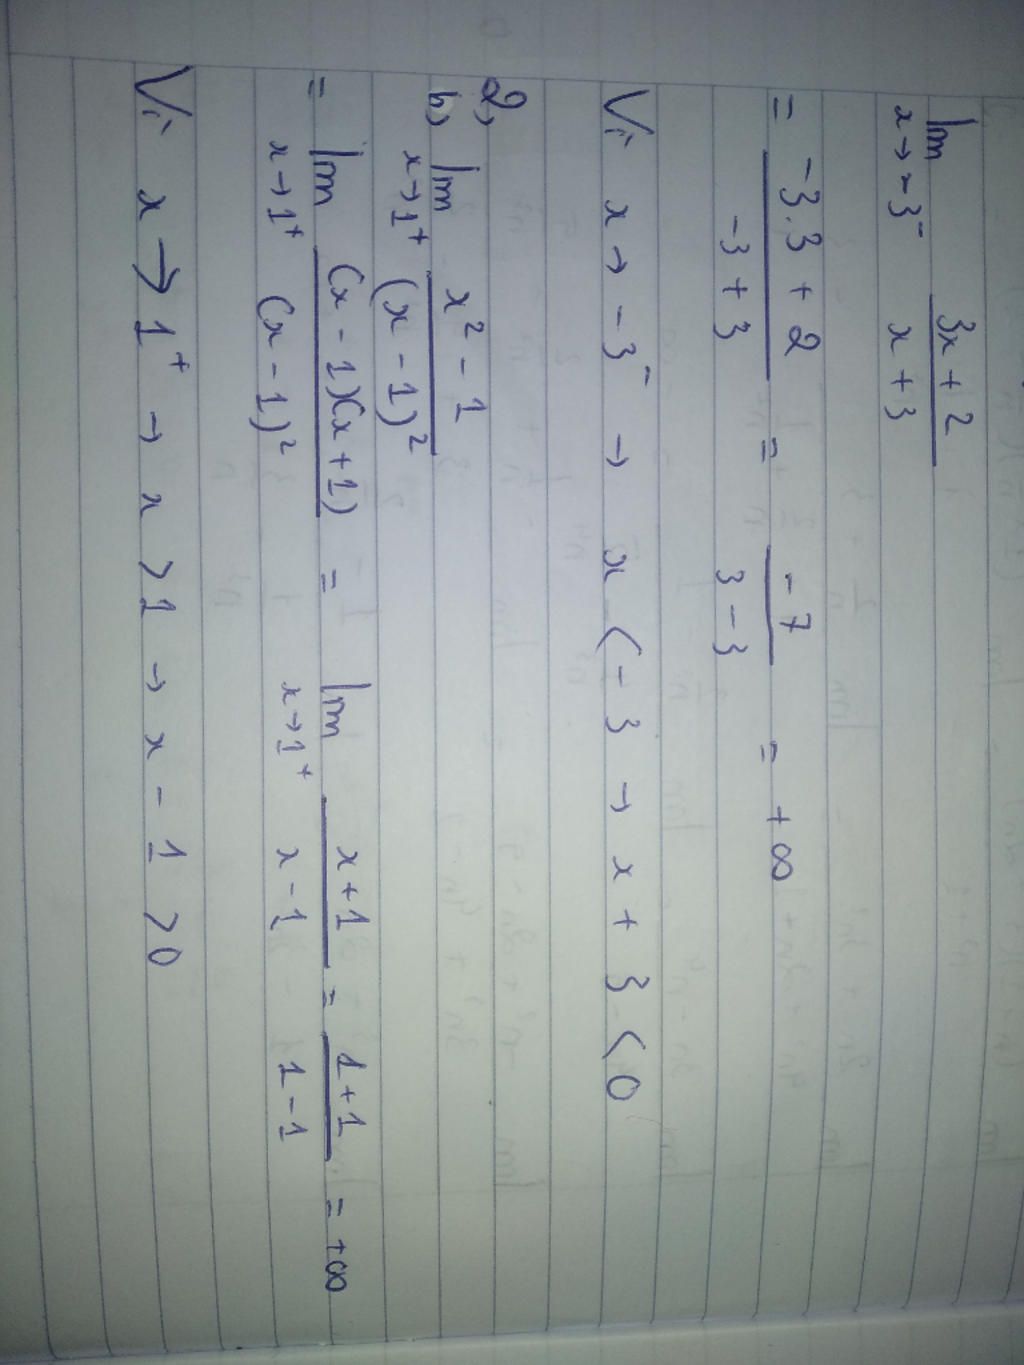 lim x→-3⁻ (3x + 2)/(x + 3)
= (-3.3 + 2)/(-3 + 3) = -7/(3 - 3) = +∞
Vì x → -3⁻ → x < -3 → x + 3 < 0
2,
b, lim x→1⁺ (x² - 1)/(x - 1)²
= lim x→1⁺ (x - 1)(x + 1)/(x - 1)² = lim x→1⁺ (x + 1)/(x - 1) = (1 + 1)/(1 - 1) = +∞
Vì x → 1⁺ → x > 1 → x - 1 > 0